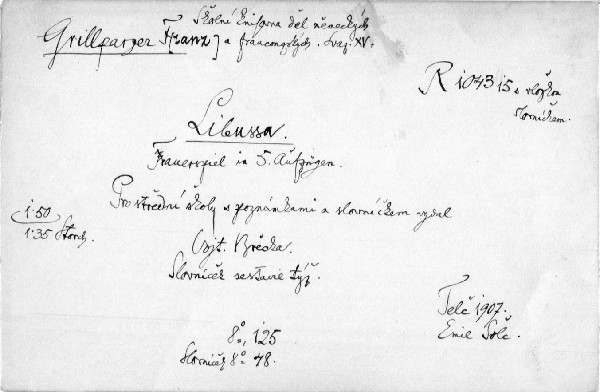 Školní knihovna děl německých
Grillparzer Franz] a francouzských. Svaz. XV.
R 1043 15 s vložkou
slovníčkem.
Libussa.
Trauerspiel in 5. Aufzügen.
Pro střední školy s poznámkami a slovníčkem vydal
1·50
1·35 Storch.
Vojt. Brěska.
Slovníček sestavil týž.
Telč 1907.
Emil Šolc.
8°, 125
Slovníček 8° 48.